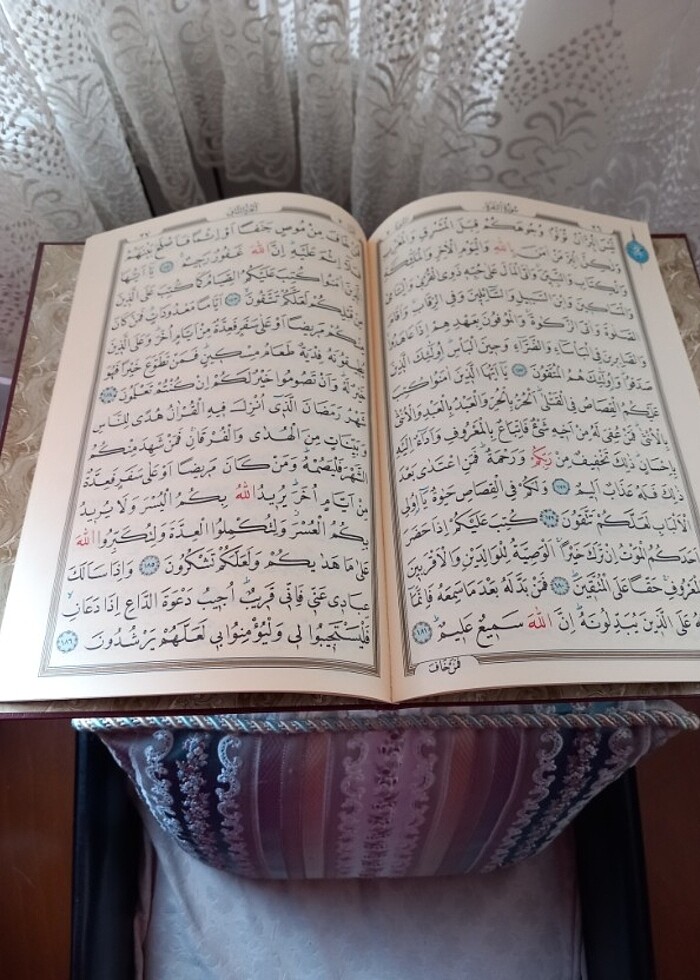 سُورَةُ الْبَقَرَةِ
٢٦
لَيْسَ الْبِرَّ اَنْ تُوَلُّوا وُجُوهَكُمْ قِبَلَ الْمَشْرِقِ وَالْمَغْرِبِ
وَلٰكِنَّ الْبِرَّ مَنْ اٰمَنَ بِاللّٰهِ وَالْيَوْمِ الْاٰخِرِ وَالْمَلٰٓئِكَةِ
وَالْكِتَابِ وَالنَّبِيّٖنَ وَاٰتَى الْمَالَ عَلٰى حُبِّهٖ ذَوِي الْقُرْبٰى وَالْيَتَامٰى
وَالْمَسَاكٖينَ وَابْنَ السَّبٖيلِ وَالسَّٓائِلٖينَ وَفِي الرِّقَابِ وَاَقَامَ
الصَّلٰوةَ وَاٰتَى الزَّكٰوةَ وَالْمُوفُونَ بِعَهْدِهِمْ اِذَا عَاهَدُوا
وَالصَّابِرٖينَ فِي الْبَأْسَٓاءِ وَالضَّرَّٓاءِ وَحٖينَ الْبَأْسِ اُولٰٓئِكَ الَّذٖينَ
صَدَقُوا وَاُولٰٓئِكَ هُمُ الْمُتَّقُونَ ١٧٧ يَٓا اَيُّهَا الَّذٖينَ اٰمَنُوا كُتِبَ
عَلَيْكُمُ الْقِصَاصُ فِي الْقَتْلٰى اَلْحُرُّ بِالْحُرِّ وَالْعَبْدُ بِالْعَبْدِ وَالْاُنْثٰى
بِالْاُنْثٰى فَمَنْ عُفِيَ لَهُ مِنْ اَخٖيهِ شَيْءٌ فَاتِّبَاعٌ بِالْمَعْرُوفِ وَاَدَٓاءٌ اِلَيْهِ
بِاِحْسَانٍ ذٰلِكَ تَخْفٖيفٌ مِنْ رَبِّكُمْ وَرَحْمَةٌ فَمَنِ اعْتَدٰى بَعْدَ
ذٰلِكَ فَلَهُ عَذَابٌ اَلٖيمٌ ١٧٨ وَلَكُمْ فِي الْقِصَاصِ حَيٰوةٌ يَٓا اُولِي
الْاَلْبَابِ لَعَلَّكُمْ تَتَّقُونَ ١٧٩ كُتِبَ عَلَيْكُمْ اِذَا حَضَرَ
اَحَدَكُمُ الْمَوْتُ اِنْ تَرَكَ خَيْرًا الْوَصِيَّةُ لِلْوَالِدَيْنِ وَالْاَقْرَبٖينَ
بِالْمَعْرُوفِ حَقًّا عَلَى الْمُتَّقٖينَ ١٨٠ فَمَنْ بَدَّلَهُ بَعْدَ مَا سَمِعَهُ فَاِنَّمَٓا
اِثْمُهُ عَلَى الَّذٖينَ يُبَدِّلُونَهُ اِنَّ اللّٰهَ سَمٖيعٌ عَلٖيمٌ ١٨١
فَمَنْ خَافَ
٢٧
فَمَنْ خَافَ مِنْ مُوصٍ جَنَفًا اَوْ اِثْمًا فَاَصْلَحَ بَيْنَهُمْ
فَلَٓا اِثْمَ عَلَيْهِ اِنَّ اللّٰهَ غَفُورٌ رَحٖيمٌ ١٨٢ يَٓا اَيُّهَا
الَّذٖينَ اٰمَنُوا كُتِبَ عَلَيْكُمُ الصِّيَامُ كَمَا كُتِبَ عَلَى الَّذٖينَ
مِنْ قَبْلِكُمْ لَعَلَّكُمْ تَتَّقُونَ ١٨٣ اَيَّامًا مَعْدُودَاتٍ فَمَنْ كَانَ
مِنْكُمْ مَرٖيضًا اَوْ عَلٰى سَفَرٍ فَعِدَّةٌ مِنْ اَيَّامٍ اُخَرَ وَعَلَى الَّذٖينَ
يُطٖيقُونَهُ فِدْيَةٌ طَعَامُ مِسْكٖينٍ فَمَنْ تَطَوَّعَ خَيْرًا فَهُوَ
خَيْرٌ لَهُ وَاَنْ تَصُومُوا خَيْرٌ لَكُمْ اِنْ كُنْتُمْ تَعْلَمُونَ ١٨٤
شَهْرُ رَمَضَانَ الَّذٖٓي اُنْزِلَ فٖيهِ الْقُرْاٰنُ هُدًى لِلنَّاسِ
وَبَيِّنَاتٍ مِنَ الْهُدٰى وَالْفُرْقَانِ فَمَنْ شَهِدَ مِنْكُمُ
الشَّهْرَ فَلْيَصُمْهُ وَمَنْ كَانَ مَرٖيضًا اَوْ عَلٰى سَفَرٍ فَعِدَّةٌ
مِنْ اَيَّامٍ اُخَرَ يُرٖيدُ اللّٰهُ بِكُمُ الْيُسْرَ وَلَا يُرٖيدُ
بِكُمُ الْعُسْرَ وَلِتُكْمِلُوا الْعِدَّةَ وَلِتُكَبِّرُوا اللّٰهَ
عَلٰى مَا هَدٰيكُمْ وَلَعَلَّكُمْ تَشْكُرُونَ ١٨٥ وَاِذَا سَاَلَكَ
عِبَادٖي عَنّٖي فَاِنّٖي قَرٖيبٌ اُجٖيبُ دَعْوَةَ الدَّاعِ اِذَا دَعَانِ
فَلْيَسْتَجٖيبُوا لٖي وَلْيُؤْمِنُوا بٖي لَعَلَّهُمْ يَرْشُدُونَ ١٨٦